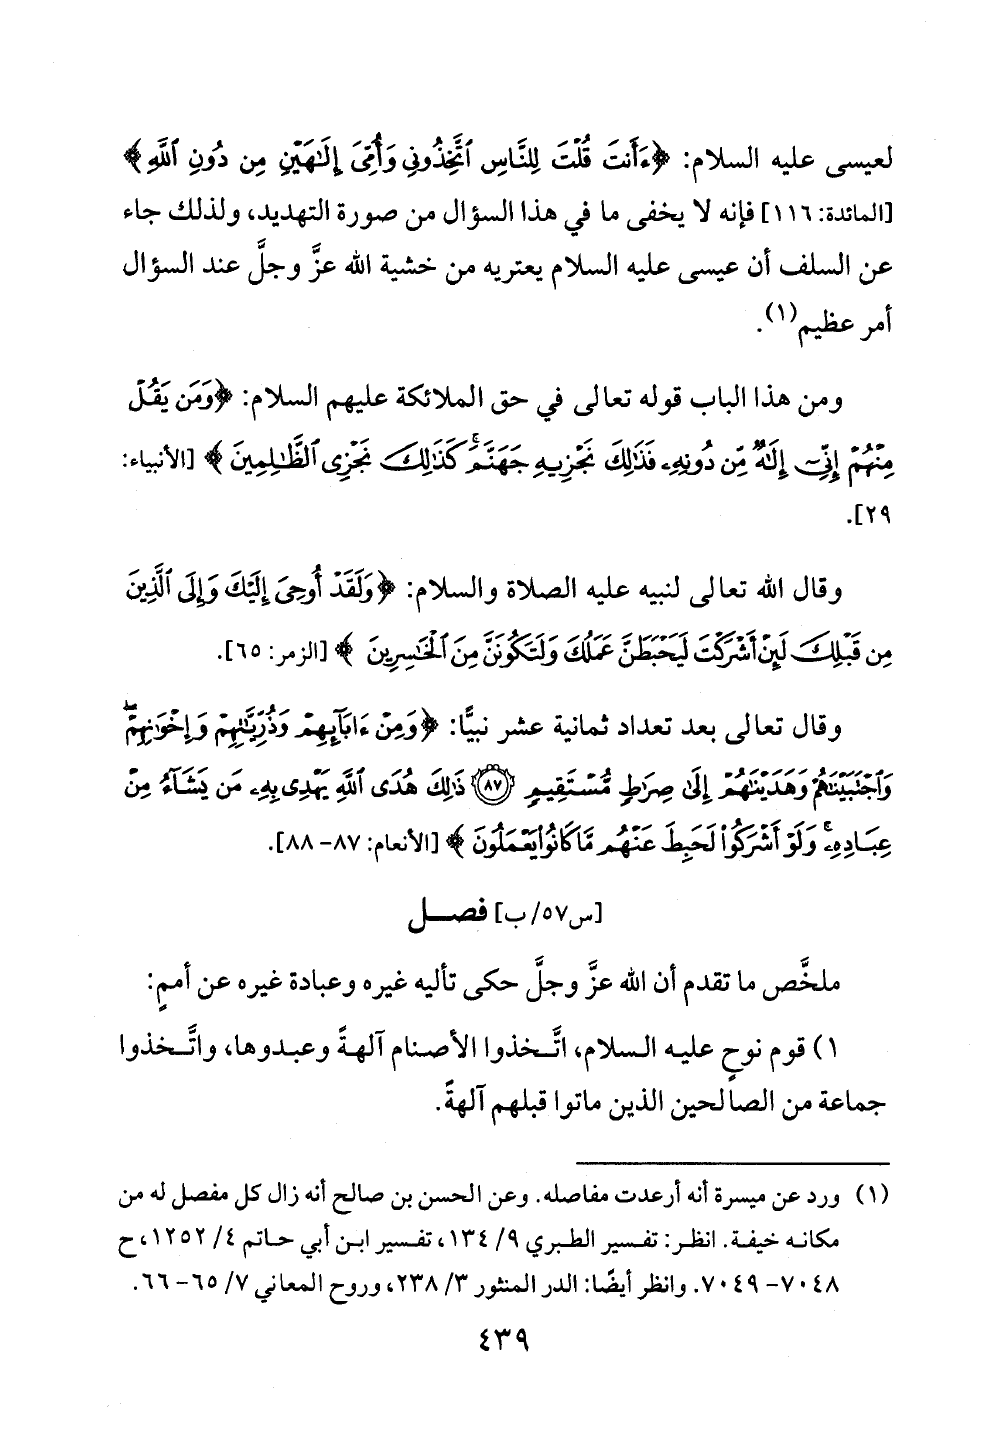 لعيسى عليه السلام: ﴿ءَأَنتَ قُلْتَ لِلنَّاسِ ٱتَّخِذُونِي وَأُمِّيَ إِلَٰهَيْنِ مِن دُونِ ٱللَّهِ﴾
[المائدة: ١١٦] فإنه لا يخفى ما في هذا السؤال من صورة التهديد، ولذلك جاء
عن السلف أن عيسى عليه السلام يعتريه من خشية الله عزَّ وجلَّ عند السؤال
أمر عظيم(١).
ومن هذا الباب قوله تعالى في حق الملائكة عليهم السلام: ﴿وَمَن يَقُلْ
مِنْهُمْ إِنِّيٓ إِلَٰهٌ مِّن دُونِهِۦ فَذَٰلِكَ نَجْزِيهِ جَهَنَّمَۚ كَذَٰلِكَ نَجْزِي ٱلظَّٰلِمِينَ﴾ [الأنبياء:
٢٩].
وقال الله تعالى لنبيه عليه الصلاة والسلام: ﴿وَلَقَدْ أُوحِيَ إِلَيْكَ وَإِلَى ٱلَّذِينَ
مِن قَبْلِكَ لَئِنْ أَشْرَكْتَ لَيَحْبَطَنَّ عَمَلُكَ وَلَتَكُونَنَّ مِنَ ٱلْخَٰسِرِينَ﴾ [الزمر: ٦٥].
وقال تعالى بعد تعداد ثمانية عشر نبيًّا: ﴿وَمِنْ ءَابَآئِهِمْ وَذُرِّيَّٰتِهِمْ وَإِخْوَٰنِهِمْۖ
وَٱجْتَبَيْنَٰهُمْ وَهَدَيْنَٰهُمْ إِلَىٰ صِرَٰطٍ مُّسْتَقِيمٍ ٨٧ ذَٰلِكَ هُدَى ٱللَّهِ يَهْدِي بِهِۦ مَن يَشَآءُ مِنْ
عِبَادِهِۦۚ وَلَوْ أَشْرَكُوا۟ لَحَبِطَ عَنْهُم مَّا كَانُوا۟ يَعْمَلُونَ﴾ [الأنعام: ٨٧- ٨٨].
[س٥٧/ ب] فصـــل
ملخَّص ما تقدم أن الله عزَّ وجلَّ حكى تأليه غيره وعبادة غيره عن أممٍ:
١) قوم نوحٍ عليه السلام، اتَّخذوا الأصنام آلهةً وعبدوها، واتَّخذوا
جماعة من الصالحين الذين ماتوا قبلهم آلهةً.
(١) ورد عن ميسرة أنه أرعدت مفاصله. وعن الحسن بن صالح أنه زال كل مفصل له من
مكانه خيفة. انظر: تفسير الطبري ٩/ ١٣٤، تفسير ابن أبي حاتم ٤/ ١٢٥٢، ح
٧٠٤٨- ٧٠٤٩. وانظر أيضًا: الدر المنثور ٣/ ٢٣٨، وروح المعاني ٧/ ٦٥- ٦٦.
٤٣٩